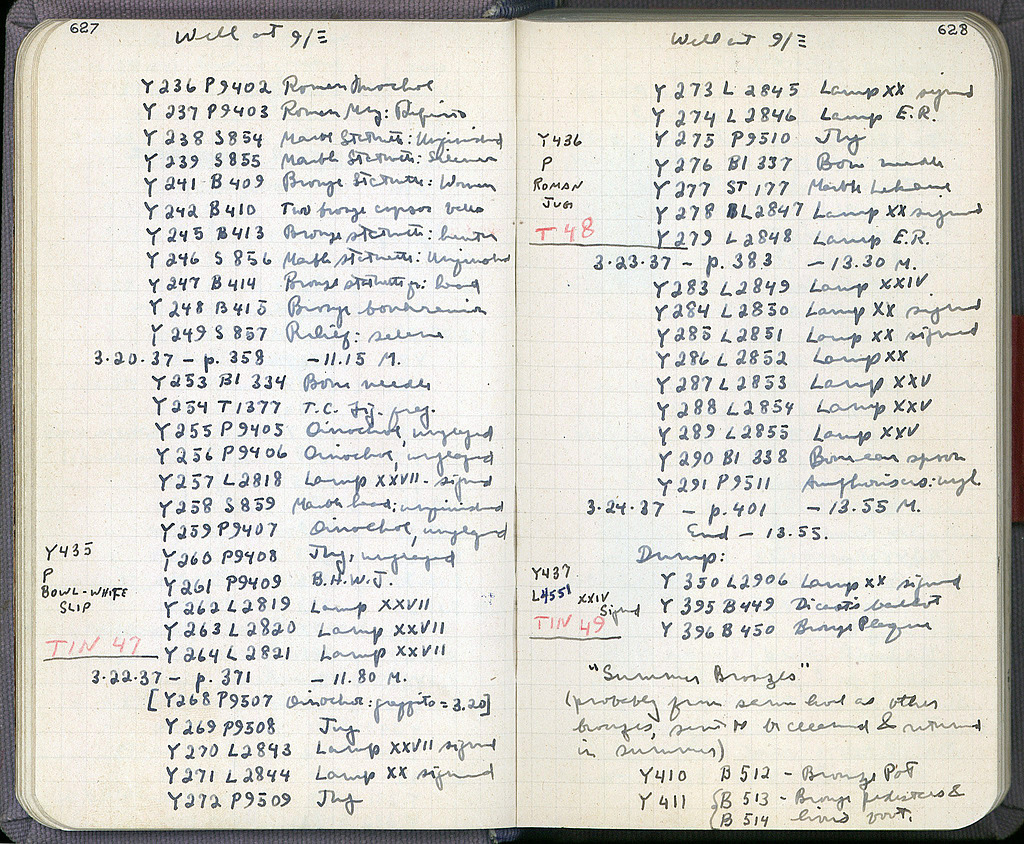 627
Well at 9/Ξ
Y 236 P9402 Roman Oinochoe
Y 237 P9403 Roman Mug:
Y 238 S 854 Marble Statuette: Unfinished
Y 239 S 855 Marble Statuette:
Y 241 B 409 Bronze Statuette: Woman
Y 242 B 410 Two bronze cupids
Y 245 B 413 Bronze statuette:
Y 246 S 856 Marble statuette: Unfinished
Y 247 B 414 Bronze statuette fr: head
Y 248 B 415 Bronze
Y 249 S 857 Relief: selene
3.20.37 – p. 358 – 11.15 M.
Y 253 BI 334 Bone needle
Y 254 T 1377 T.C. fig. frag.
Y 255 P9405 Oinochoe, unglazed
Y 256 P9406 Oinochoe, unglazed
Y 257 L 2818 Lamp XXVII - signed
Y 258 S 859 Marble head: unfinished
Y 259 P9407 Oinochoe, unglazed
Y 260 P9408 Jug, unglazed
Y435
P
BOWL-WHITE
SLIP
TIN 47
Y 261 P9409 B.H.W.J.
Y 262 L 2819 Lamp XXVII
Y 263 L 2820 Lamp XXVII
Y 264 L 2821 Lamp XXVII
3.22.37 – p. 371 – 11.80 M.
[Y 268 P9507 Oinochoe: graffito = 3.20]
Y 269 P9508 Jug
Y 270 L 2843 Lamp XXVII signed
Y 271 L 2844 Lamp XX signed
Y 272 P9509 Jug
628
Well at 9/Ξ
Y 273 L 2845 Lamp XX signed
Y 274 L 2846 Lamp E.R.
Y436
P
ROMAN
JUG
T 48
Y 275 P9510 Jug
Y 276 BI 337 Bone needle
Y 277 ST 177 Marble Lekane
Y 278 L2847 Lamp XX signed
Y 279 L 2848 Lamp E.R.
3.23.37 – p. 383 – 13.30 M.
Y 283 L 2849 Lamp XXIV
Y 284 L 2850 Lamp XX signed
Y 285 L 2851 Lamp XX signed
Y 286 L 2852 Lamp XX
Y 287 L 2853 Lamp XXV
Y 288 L 2854 Lamp XXV
Y 289 L 2855 Lamp XXV
Y 290 BI 338 Bone ear spoon
Y 291 P9511 Amphoriskos: ungl.
3.24.37 – p. 401 – 13.55 M.
End – 13.55.
Dump:
Y437
L4551 XXIV
Signed
TIN 49
Y 350 L 2906 Lamp XX signed
Y 395 B 449 Dicast's ballot
Y 396 B 450 Bronze Plaque
"Summer Bronzes"
(probably from same level as other
bronzes, sent to be cleaned & returned
in summer)
Y410 B 512 – Bronze Pot
Y 411 { B 513 – Bronze &
B 514